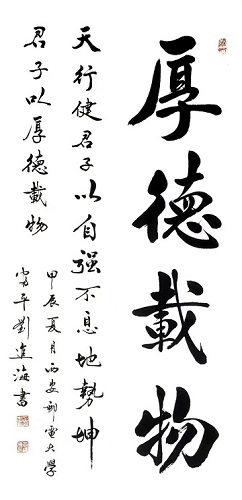 厚德載物
天行健君子以自强不息地勢坤
君子以厚德載物
甲辰夏月西安郵電大學
富平劉進海書